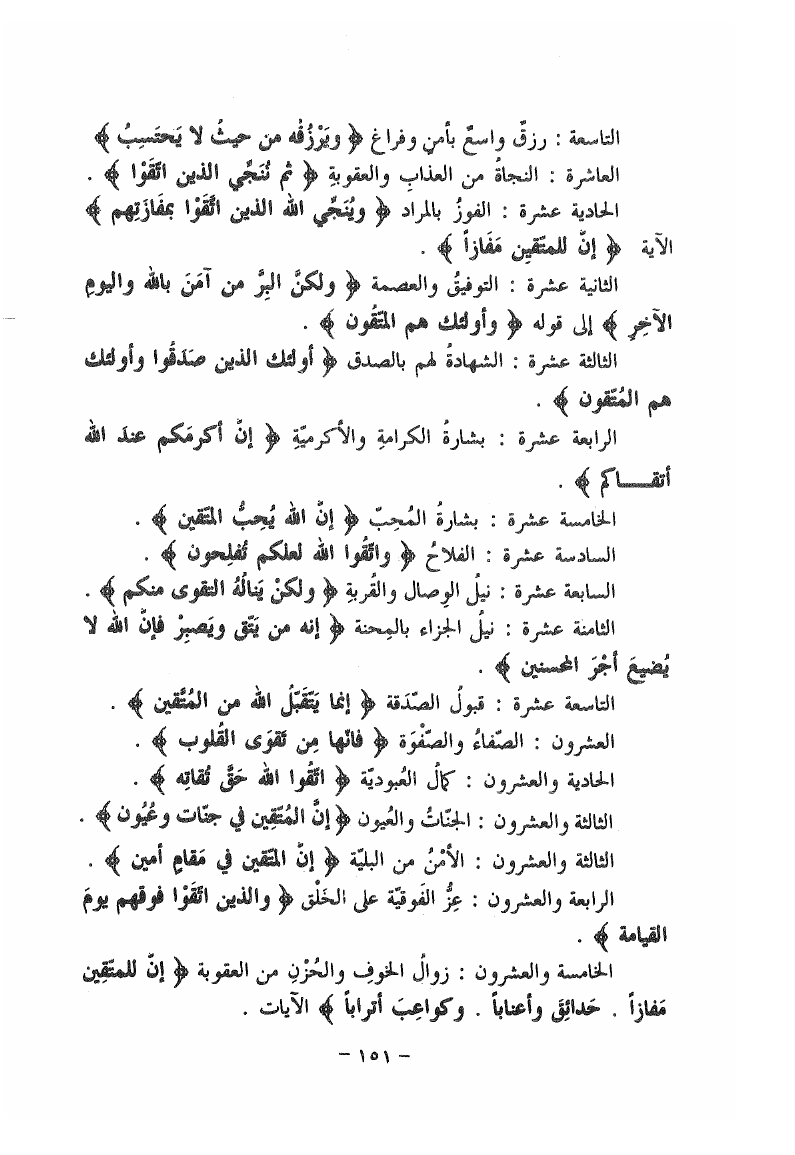 التاسعة : رزقٌ واسعٌ بأمنٍ وفراغ ﴿ ويَرْزُقُه من حيثُ لا يَحتَسِبُ ﴾
العاشرة : النجاةُ من العذابِ والعقوبةِ ﴿ ثم نُنَجِّي الذين اتَّقَوْا ﴾ .
الحادية عشرة : الفوزُ بالمراد ﴿ ويُنَجِّي الله الذين اتَّقَوْا بمفازَتِهم ﴾
الآية ﴿ إنّ للمتّقين مَفَازاً ﴾ .
الثانية عشرة : التوفيقُ والعصمة ﴿ ولكنَّ البِرَّ من آمَنَ بالله واليومِ
الآخِرِ ﴾ إلى قوله ﴿ وأولئك هم المتّقُون ﴾ .
الثالثة عشرة : الشهادةُ لهم بالصدق ﴿ أولئك الذين صدَقُوا وأولئك
هم المُتّقون ﴾ .
الرابعة عشرة : بشارةُ الكرامةِ والأكرميّةِ ﴿ إنّ أكرمَكم عندَ الله
أتقــــاكم ﴾ .
الخامسة عشرة : بشارةُ المُحِبّ ﴿ إنّ الله يُحِبُّ المتّقين ﴾ .
السادسة عشرة : الفلاحُ ﴿ واتّقُوا الله لعلكم تُفلِحون ﴾ .
السابعة عشرة : نيلُ الوِصال والقُربةِ ﴿ ولكنْ يَنالُهُ التقوى منكم ﴾ .
الثامنة عشرة : نيلُ الجزاء بالمِحنة ﴿ إنه من يَتّق ويَصبِرْ فإنّ الله لا
يُضيعَ أجْرَ المحسنين ﴾ .
التاسعة عشرة : قبولُ الصّدَقة ﴿ إنما يَتَقَبّلُ الله من المُتَّقين ﴾ .
العشرون : الصّفاءُ والصّفْوَة ﴿ فانّها مِن تَقوَى القُلوب ﴾ .
الحادية والعشرون : كمالُ العُبوديّة ﴿ اتّقُوا الله حَقَّ تُقاتِه ﴾ .
الثالثة والعشرون : الجنّاتُ والعُيون ﴿ إنَّ المُتّقِين في جنّات وعُيُون ﴾ .
الثالثة والعشرون : الأمْنُ من البليّة ﴿ إنّ المتّقين في مَقامٍ أمين ﴾ .
الرابعة والعشرون : عِزُّ الفَوقيّة على الخَلْق ﴿ والذين اتّقَوْا فوقهم يومَ
القيامة ﴾ .
الخامسة والعشرون : زوالُ الخوفِ والحُزْنِ من العقوبة ﴿ إنّ للمتّقِين
مَفازاً . حَدائِقَ وأعناباً . وكواعِبَ أتراباً ﴾ الآيات .
– ١٥١ –